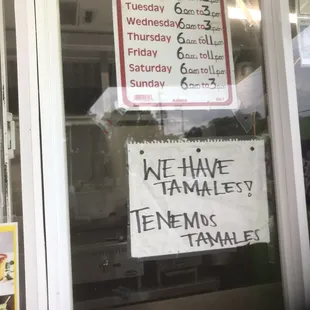 Tuesday 6am to 3pm
Wednesday 6am to 3pm
Thursday 6am to 11pm
Friday 6am to 11pm
Saturday 6am to 11pm
Sunday 6am to 3pm
WE HAVE
TAMALES!
TENEMOS
TAMALES